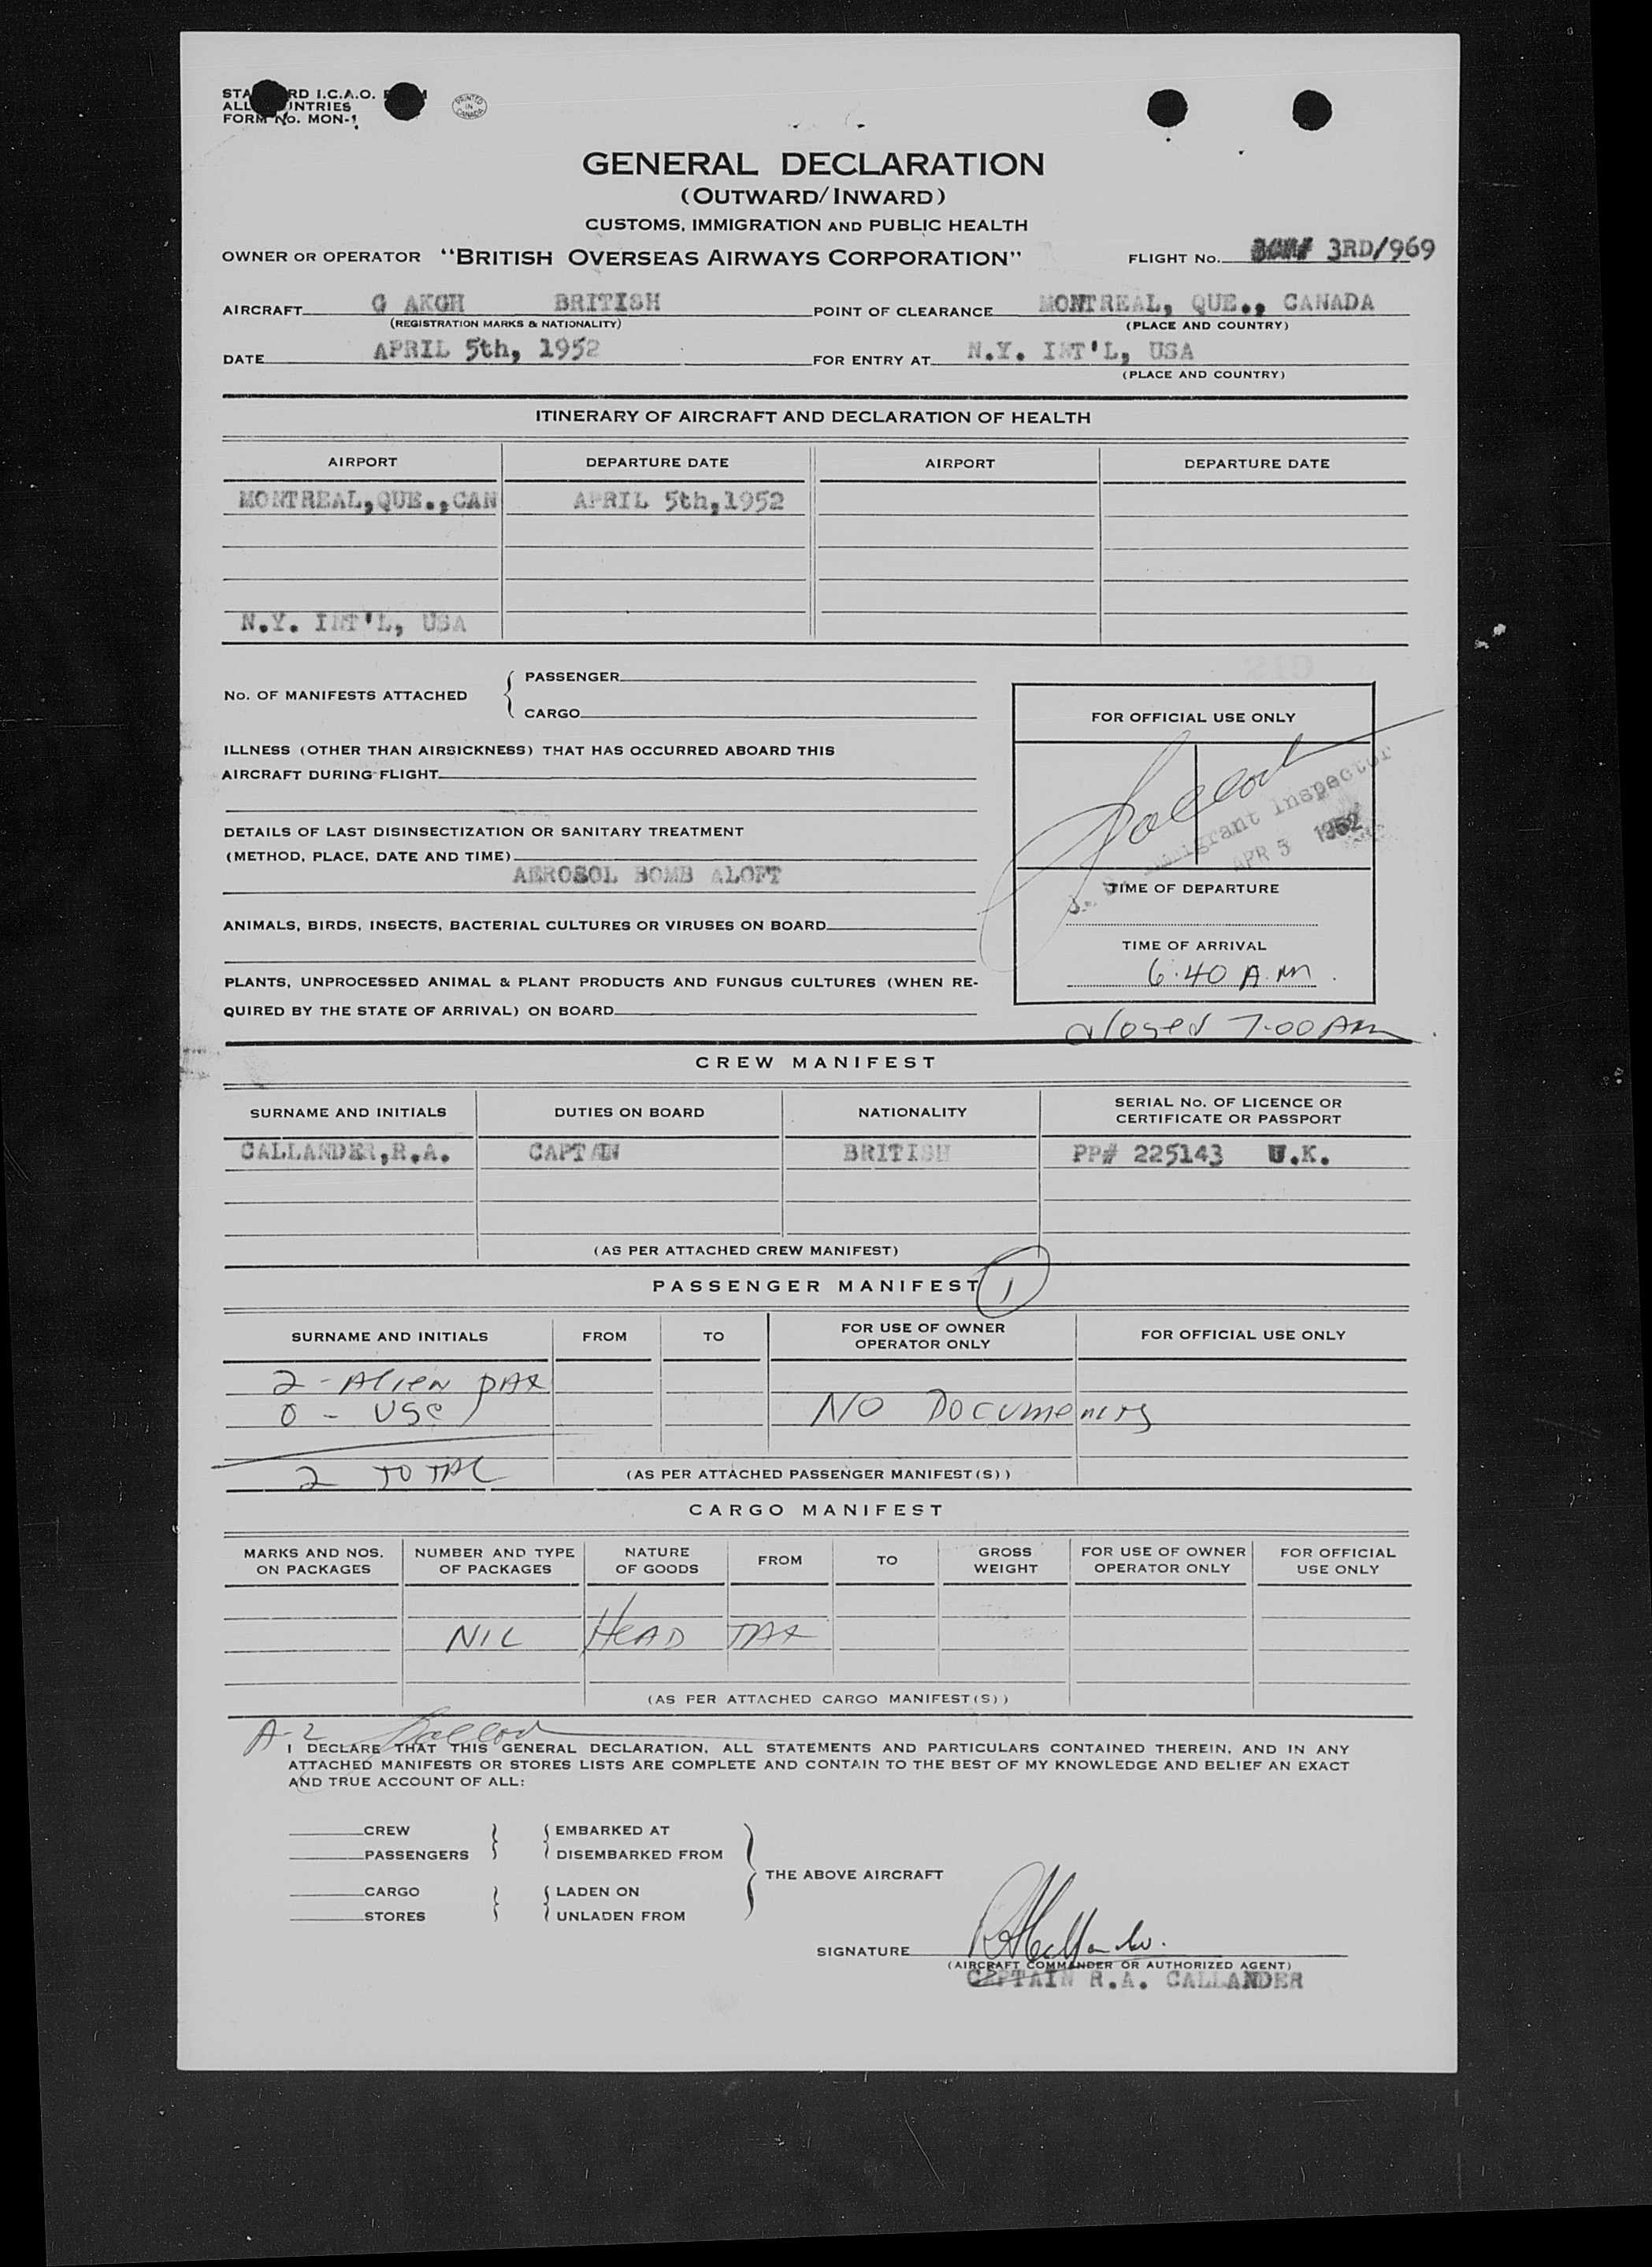 I.C.A.O.
FORM No. MON-1
PRINTED IN CANADA
GENERAL DECLARATION
(OUTWARD/INWARD)
CUSTOMS, IMMIGRATION AND PUBLIC HEALTH
OWNER OR OPERATOR "BRITISH OVERSEAS AIRWAYS CORPORATION" FLIGHT No. 3RD/969
AIRCRAFT G AKGH BRITISH POINT OF CLEARANCE MONTREAL, QUE., CANADA
(REGISTRATION MARKS & NATIONALITY) (PLACE AND COUNTRY)
DATE APRIL 5th, 1952 FOR ENTRY AT N.Y. INT'L, USA
(PLACE AND COUNTRY)
ITINERARY OF AIRCRAFT AND DECLARATION OF HEALTH
AIRPORT DEPARTURE DATE AIRPORT DEPARTURE DATE
MONTREAL,QUE.,CAN APRIL 5th,1952
N.Y. INT'L, USA
No. OF MANIFESTS ATTACHED { PASSENGER
CARGO
FOR OFFICIAL USE ONLY
ILLNESS (OTHER THAN AIRSICKNESS) THAT HAS OCCURRED ABOARD THIS
AIRCRAFT DURING FLIGHT
Immigrant Inspector
APR 5 1952
DETAILS OF LAST DISINSECTIZATION OR SANITARY TREATMENT
(METHOD, PLACE, DATE AND TIME)
AEROSOL BOMB ALOFT
TIME OF DEPARTURE
ANIMALS, BIRDS, INSECTS, BACTERIAL CULTURES OR VIRUSES ON BOARD
TIME OF ARRIVAL
6:40 A.M.
PLANTS, UNPROCESSED ANIMAL & PLANT PRODUCTS AND FUNGUS CULTURES (WHEN RE-
QUIRED BY THE STATE OF ARRIVAL) ON BOARD
closed 7:00 AM
CREW MANIFEST
SURNAME AND INITIALS DUTIES ON BOARD NATIONALITY SERIAL No. OF LICENCE OR CERTIFICATE OR PASSPORT
CALLANDER,R.A. CAPTAIN BRITISH PP# 225143 U.K.
(AS PER ATTACHED CREW MANIFEST)
PASSENGER MANIFEST 1
SURNAME AND INITIALS FROM TO FOR USE OF OWNER OPERATOR ONLY FOR OFFICIAL USE ONLY
2 - Alien PAX
0 - USC NO Documents
2 TOTAL (AS PER ATTACHED PASSENGER MANIFEST(S))
CARGO MANIFEST
MARKS AND NOS. ON PACKAGES NUMBER AND TYPE OF PACKAGES NATURE OF GOODS FROM TO GROSS WEIGHT FOR USE OF OWNER OPERATOR ONLY FOR OFFICIAL USE ONLY
NIL HEAD TAX
(AS PER ATTACHED CARGO MANIFEST(S))
A-2
I DECLARE THAT THIS GENERAL DECLARATION, ALL STATEMENTS AND PARTICULARS CONTAINED THEREIN, AND IN ANY
ATTACHED MANIFESTS OR STORES LISTS ARE COMPLETE AND CONTAIN TO THE BEST OF MY KNOWLEDGE AND BELIEF AN EXACT
AND TRUE ACCOUNT OF ALL:
CREW EMBARKED AT
PASSENGERS DISEMBARKED FROM
THE ABOVE AIRCRAFT
CARGO LADEN ON
STORES UNLADEN FROM
SIGNATURE RACallander.
(AIRCRAFT COMMANDER OR AUTHORIZED AGENT)
CAPTAIN R.A. CALLANDER